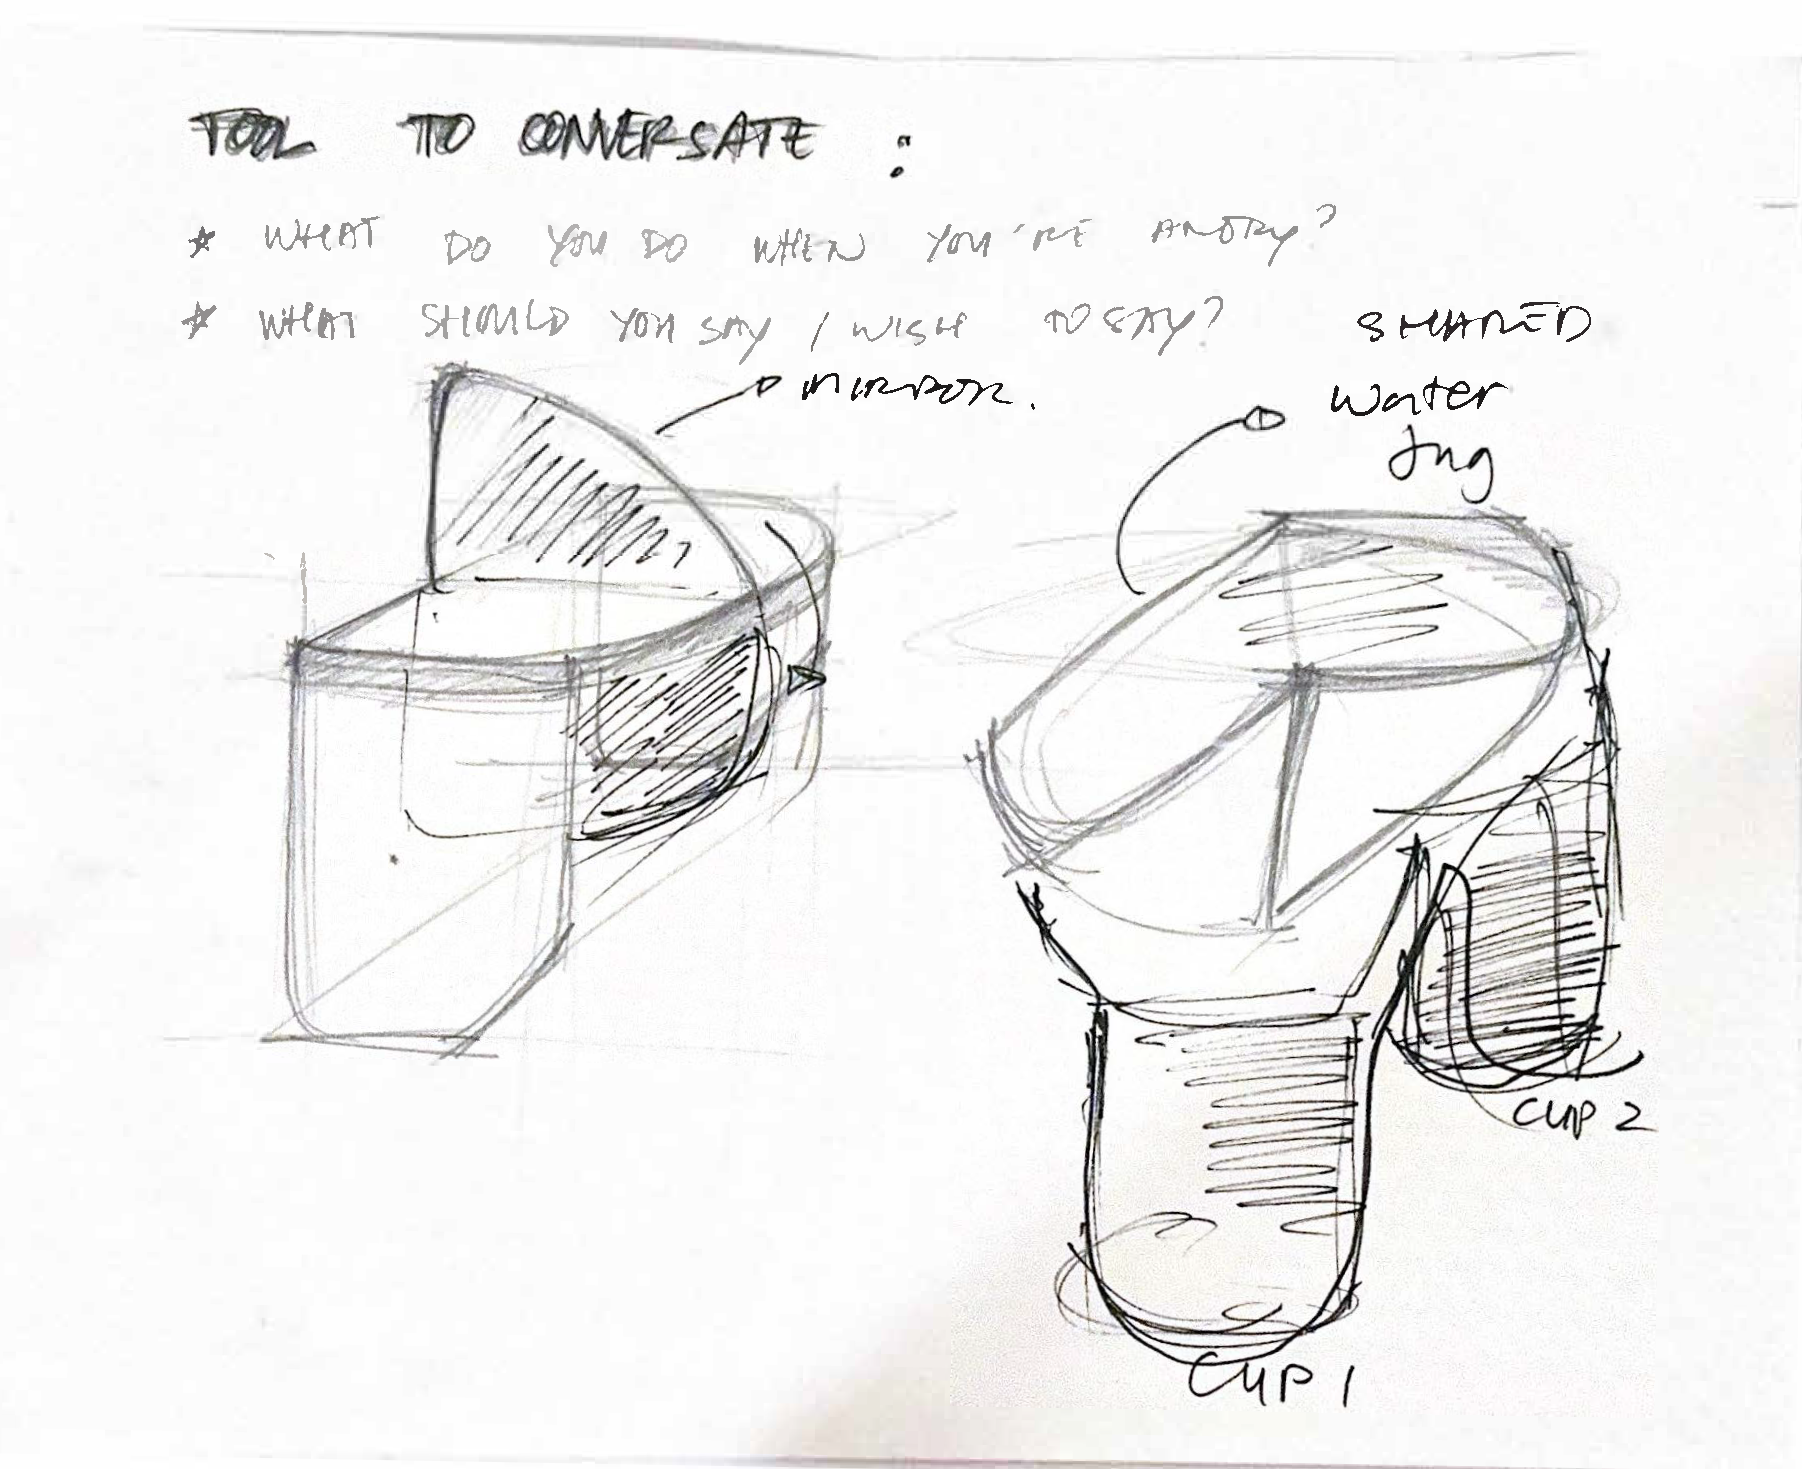 TOOL TO CONVERSATE :
* WHAT DO YOU DO WHEN YOU'RE ANGRY?
* WHAT SHOULD YOU SAY / WISH TO SAY?
MIRROR.
SHARED
Water
Jug
CUP 2
CUP 1